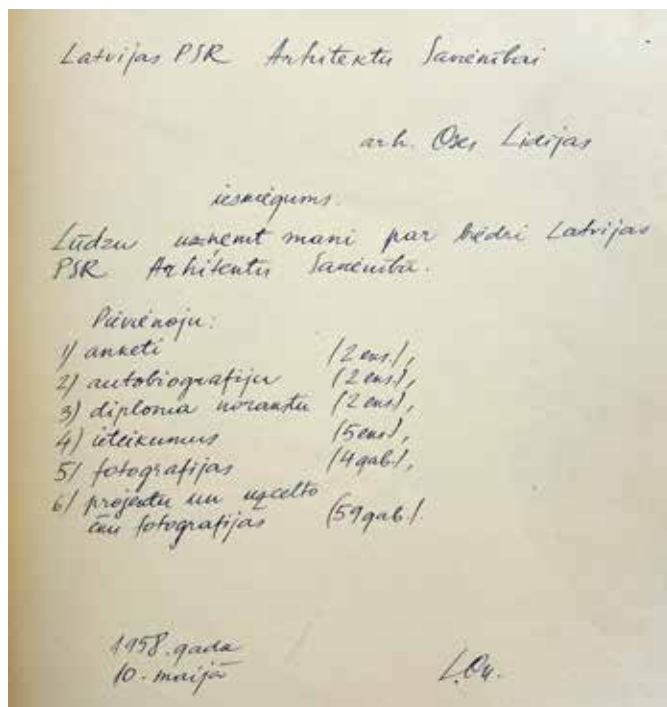 Latvijas PSR Arhitektu Savienībai
arh. Oses Lidijas
iesniegums.
Lūdzu uzņemt mani par biedri Latvijas
PSR Arhitektu Savienībā.
Pievienoju:
1) anketi (2 eks.),
2) autobiografiju (2 eks.),
3) diploma norakstu (2 eks.),
4) ieteikumus (5 eks.),
5) fotografijas (4 gab.),
6) projektu un uzcelto
ēku fotografijas (59 gab.).
1958. gada
10. maijā